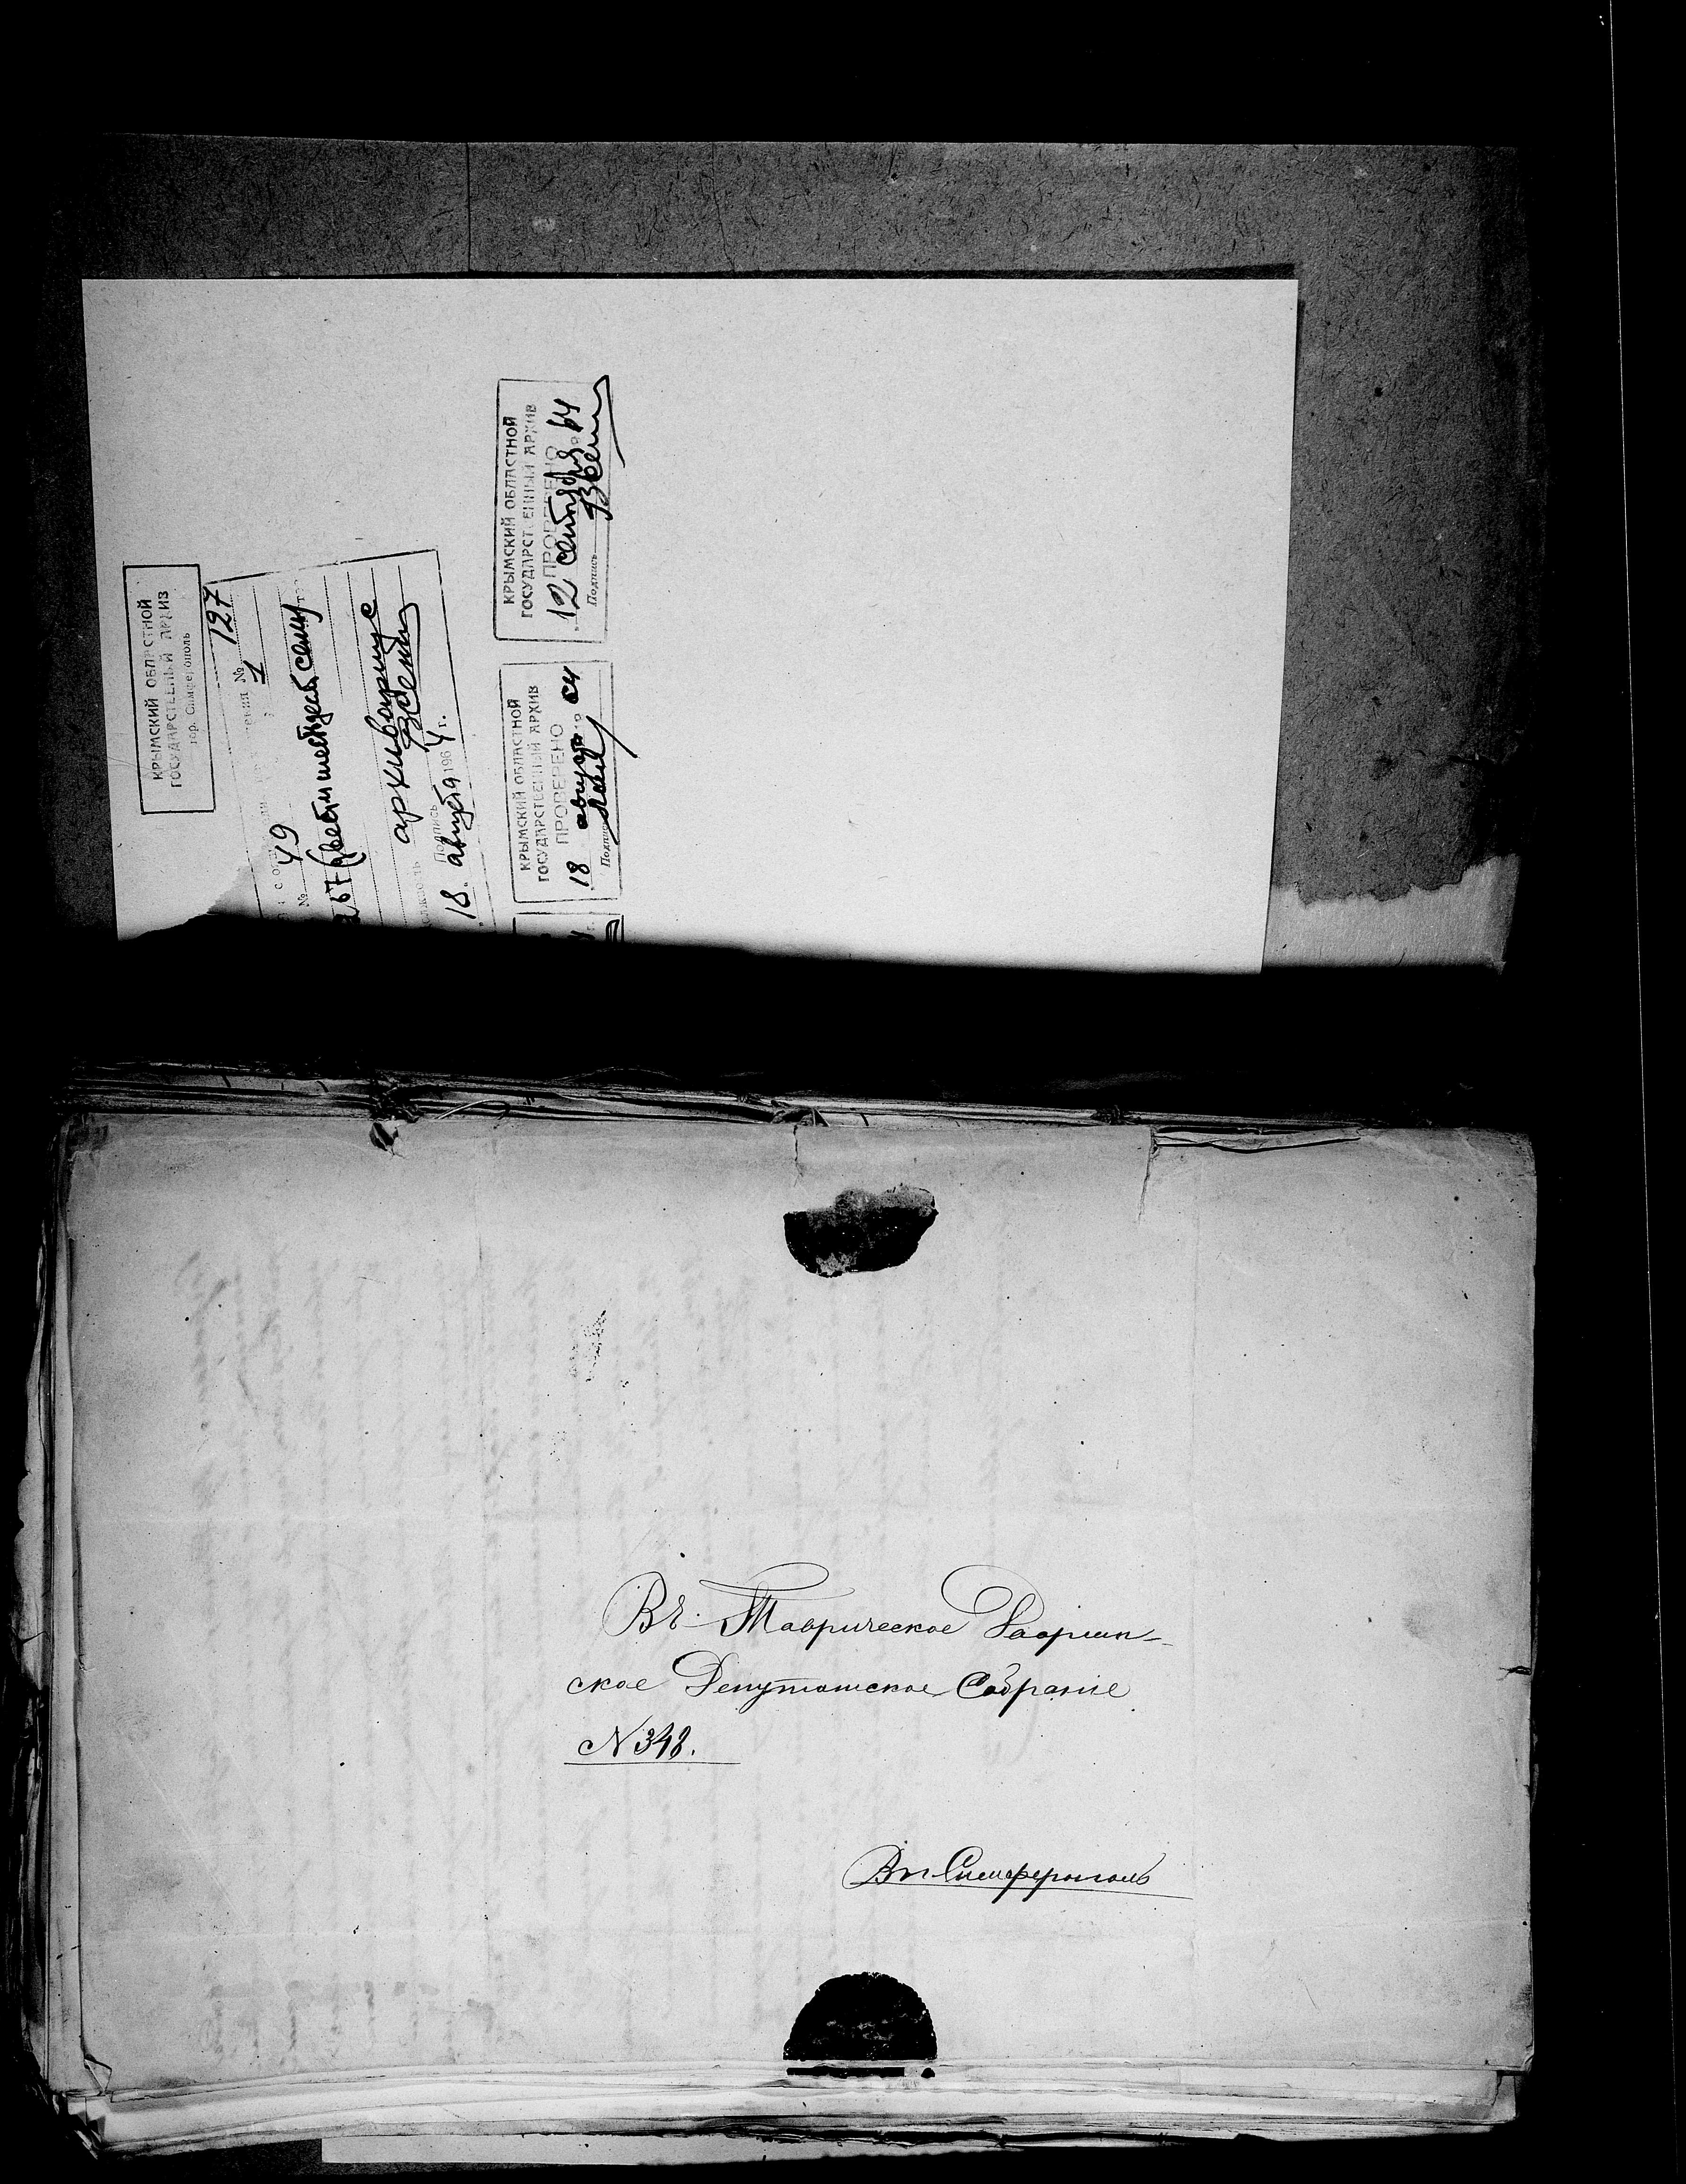 КРЫМСКИЙ ОБЛАСТНОЙ
ГОСУДАРСТВЕННЫЙ АРХИВ
гор. Симферополь
№ 127
1
№ 49
267 (двести шестьдесят семь)
архивариус
Подпись
18 августа 1964 г.
КРЫМСКИЙ ОБЛАСТНОЙ
ГОСУДАРСТВЕННЫЙ АРХИВ
ПРОВЕРЕНО
18 августа 64
Подпись
КРЫМСКИЙ ОБЛАСТНОЙ
ГОСУДАРСТВЕННЫЙ АРХИВ
ПРОВЕРЕНО
12 сентября 64
Подпись
Въ Таврическое Дворян-
ское Депутатское Собраніе
№ 348.
Въ Симферополь